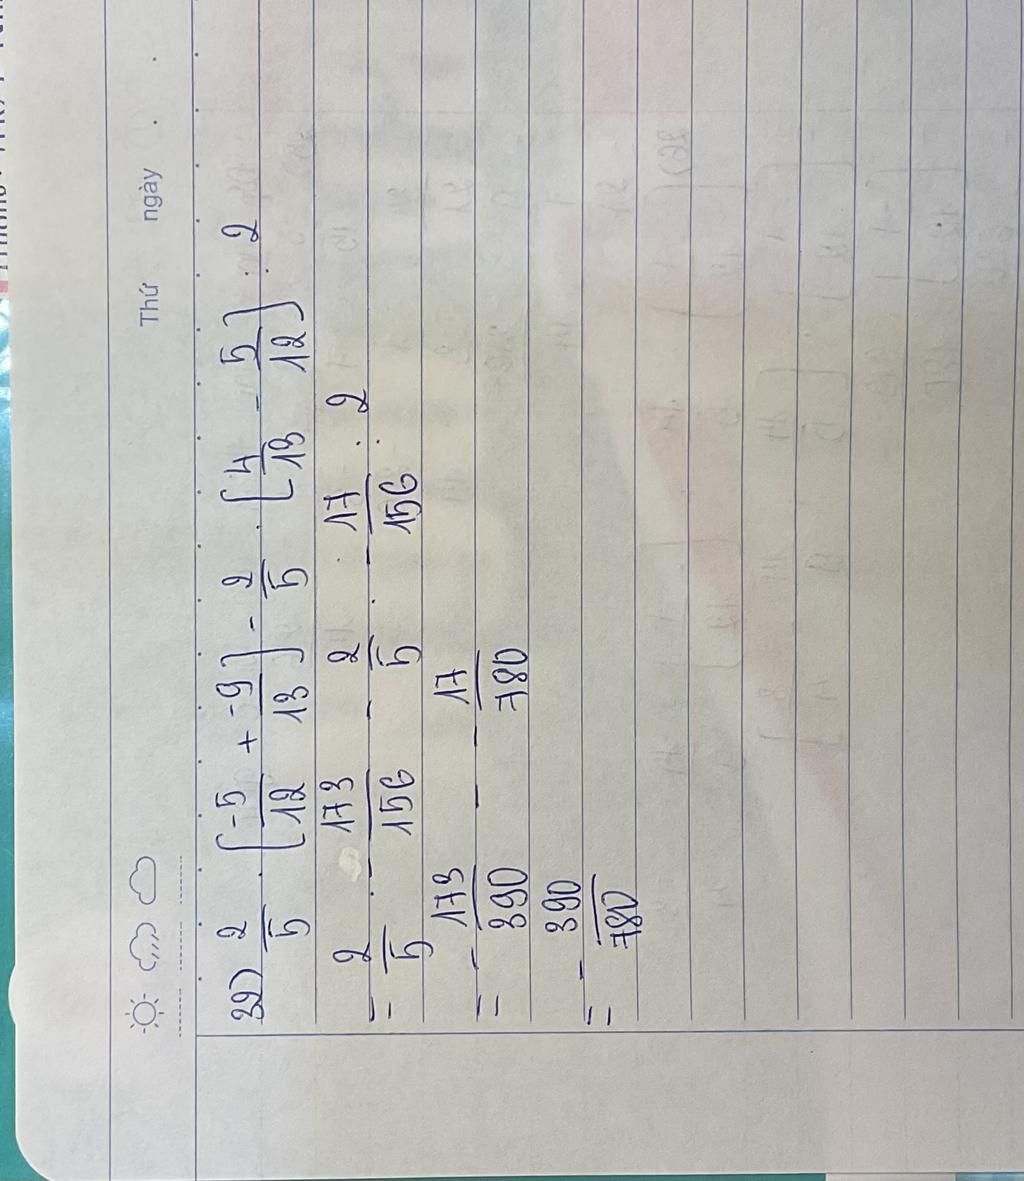 Thứ ngày
32) 2/5 . [-5/12 + -9/13] - 2/5 . [4/13 - 5/12] : 2
= 2/5 . - 173/156 - 2/5 . - 17/156 : 2
= - 173/390 - - 17/780
= - 390/780